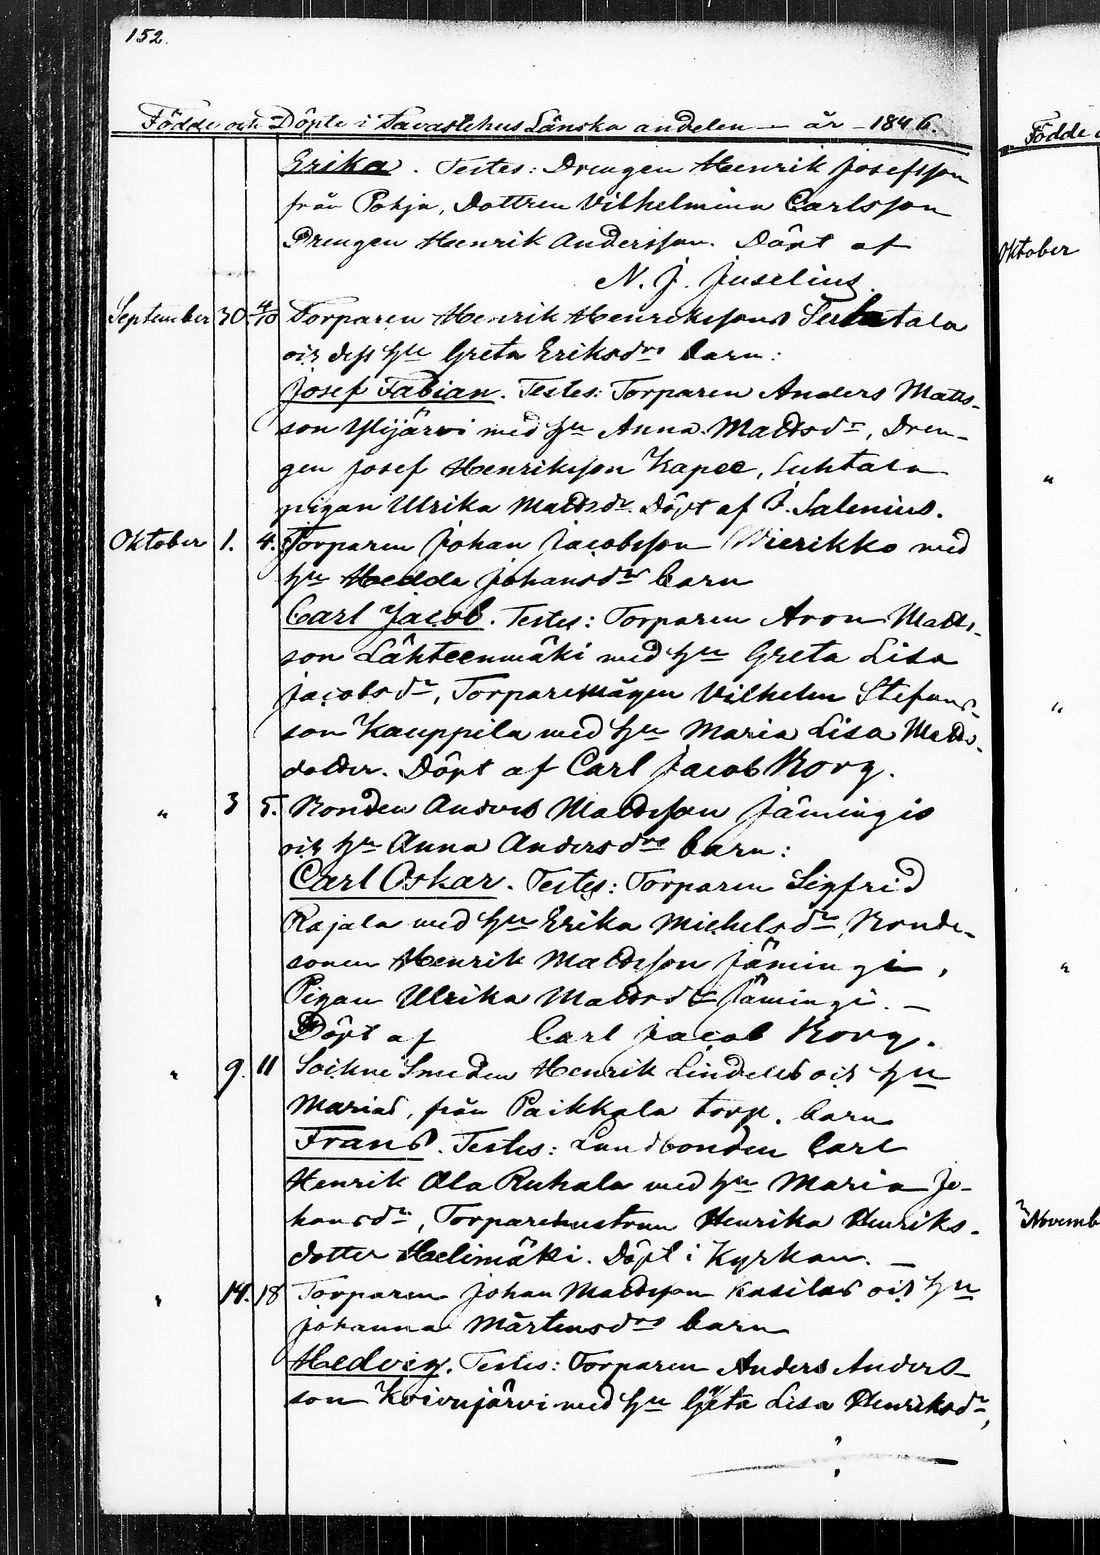 152.
Födde och Döpte i Tavastehus Länska andelen — år — 1846.
Erika. Testes: Drengen Henrik Josefsson
från Pohja, Dottren Vilhelmina Carlsson
Drengen Henrik Andersson. Döpt af
N. J. Juselius.
September 30. 4/10 Torparen Henrik Henrikssons Suhtala
och dess hu Greta Eriksdrs barn:
Josef Fabian. Testes: Torparen Anders Matts-
son Ylijärvi med hu Anna Mattsdr, Dren-
gen Josef Henriksson Kapee, Suhtala
pigan Ulrika Mattsdr. Döpt af J. Salenius.
Oktober 1. 4. Torparen Johan Jacobsson Wierikko med
hu Hedda Johansdrs barn
Carl Jacob. Testes: Torparen Aron Matts-
son Lähteenmäki med hu Greta Lisa
Jacobsdr, Torparemågen Vilhelm Stefans-
son Kauppila med hu Maria Lisa Matts-
dotter. Döpt af Carl Jacob Borg.
" 3 5. Bonden Anders Mattsson Jämingis
och hu Anna Andersdrs barn:
Carl Oskar. Testes: Torparen Sigfrid
Rajala med hu Erika Michelsdr, Bonde-
sonen Henrik Mattsson Jämingi,
Pigan Ulrika Mattsdr Jämingi. —
Döpt af Carl Jacob Borg.
" 9. 11 Sockne Smeden Henrik Lindelds och hu
Marias, från Paikkala torp. barn
Frans. Testes: Landbonden Carl
Henrik Ala Ruhala med hu Maria Jo-
hansdr, Torparehustrun Henrika Henriks-
dotter Helimäki. Döpt i Kyrkan. —
" 14. 18 Torparen Johan Mattsson Kasilas och hu
Johanna Mårtensdrs barn
Hedvig. Testes: Torparen Anders Anders-
son Koivujärvi med hu Greta Lisa Henriksdr,
Födde
Oktober
"
"
"
Novemb